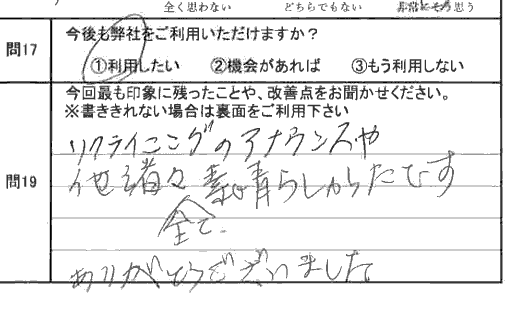 全く思わない　どちらでもない　非常にそう思う
問17
今後も弊社をご利用いただけますか？
①利用したい　②機会があれば　③もう利用しない
問19
今回最も印象に残ったことや、改善点をお聞かせください。
※書ききれない場合は裏面をご利用下さい
リクライニングのアナウンスや
他諸々素晴らしかったです
全て
ありがとうございました